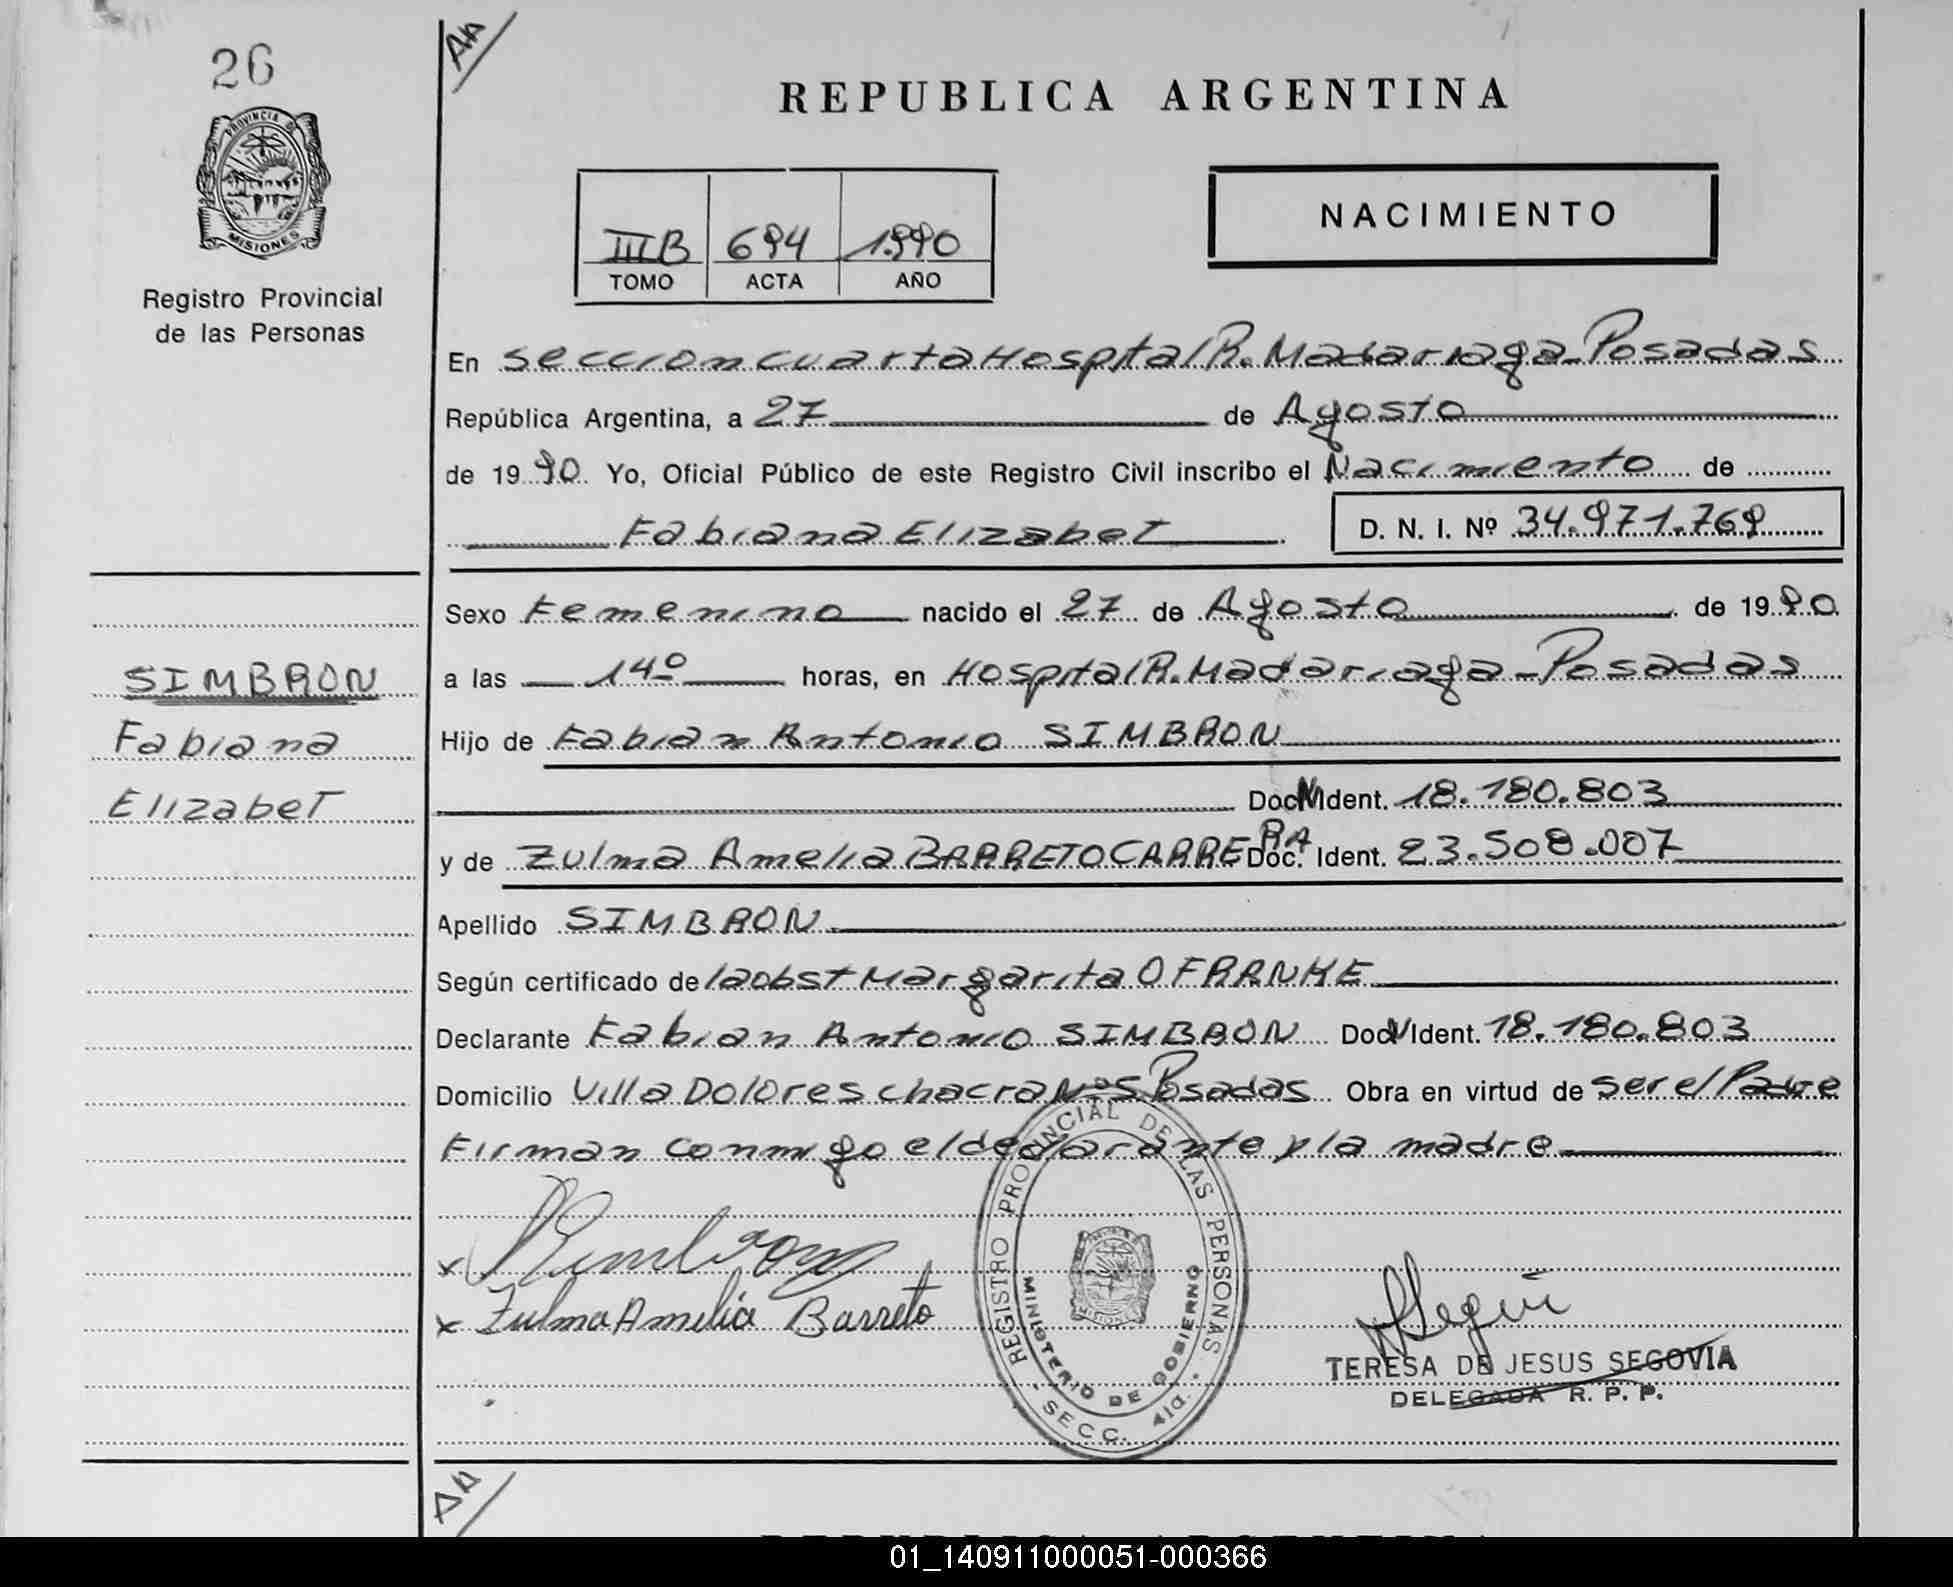 26
AA
REPUBLICA ARGENTINA
PROVINCIA DE
MISIONES
Registro Provincial
de las Personas
III B 694 1.990
TOMO ACTA AÑO
NACIMIENTO
En seccion cuarta Hospital R. Madariaga - Posadas
República Argentina, a 27 de Agosto
de 19 90. Yo, Oficial Público de este Registro Civil inscribo el Nacimiento de
Fabiana Elizabet D. N. I. Nº 34.971.769
Sexo Femenino nacido el 27 de Agosto de 19 90
a las 14º horas, en Hospital R. Madariaga - Posadas
SIMBRON
Fabiana
Elizabet
Hijo de Fabian Antonio SIMBRON
Doc N Ident. 18.180.803
y de Zulma Amelia BARRETO CARRERA Doc. Ident. 23.508.007
Apellido SIMBRON
Según certificado de la obst Margarita O FRANKE
Declarante Fabian Antonio SIMBRON Doc N Ident. 18.180.803
Domicilio Villa Dolores chacra Nº 5 Posadas Obra en virtud de ser el Padre
Firman conmigo el declarante y la madre
x Simbron
x Zulma Amelia Barreto
REGISTRO PROVINCIAL DE LAS PERSONAS
MINISTERIO DE GOBIERNO
MISIONES
SECC. 4ta.
TERESA DE JESUS SEGOVIA
DELEGADA R. P. P.
AA
REPUBLICA ARGENTINA
01_140911000051-000366